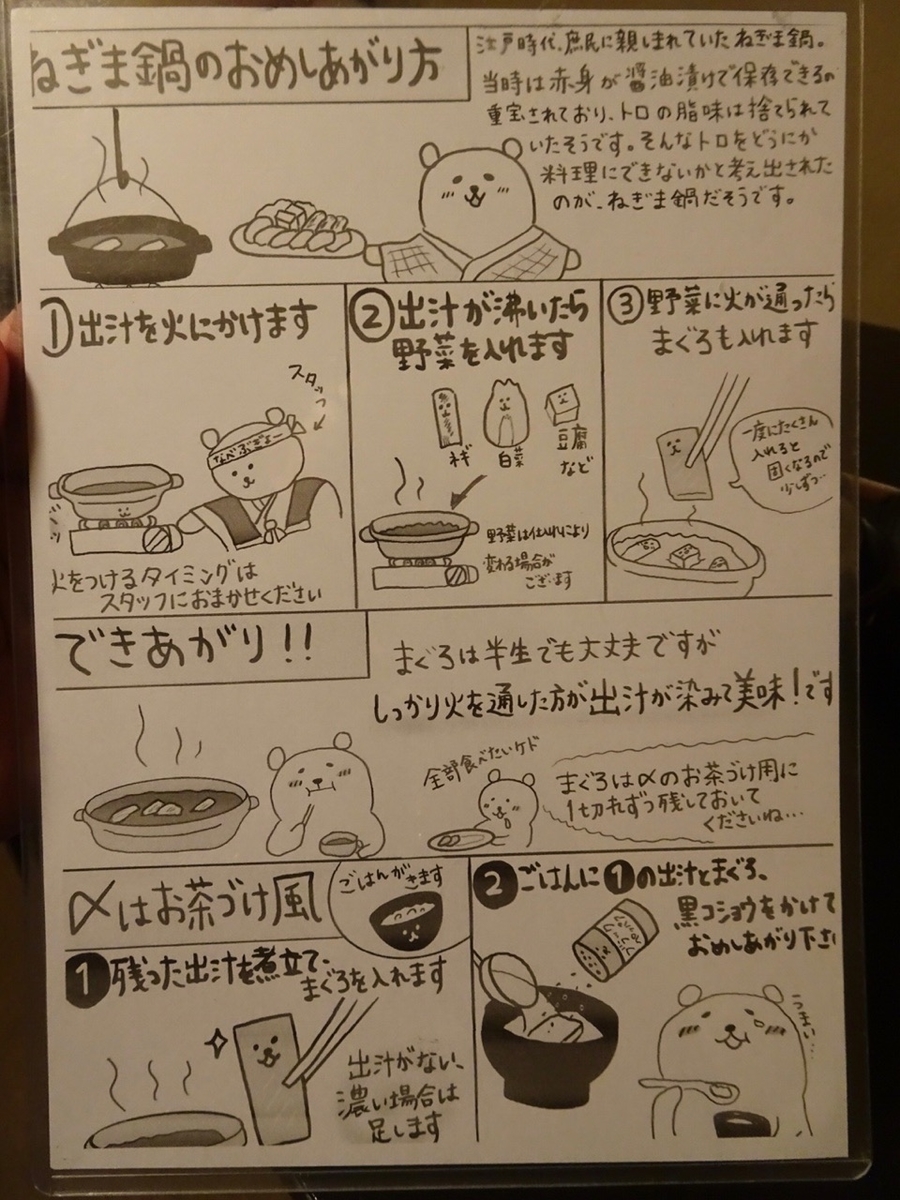 ねぎま鍋のおめしあがり方
江戸時代、庶民に親しまれていたねぎま鍋。
当時は赤身が醤油漬けで保存できるの
重宝されており、トロの脂味は捨てられて
いたそうです。そんなトロをどうにか
料理にできないかと考え出された
のが、ねぎま鍋だそうです。
①出汁を火にかけます
スタッフ
なべぶぎょー
火をつけるタイミングは
スタッフにおまかせください
②出汁が沸いたら
野菜を入れます
ネギ
白菜
豆腐
など
野菜は仕入れにより
変わる場合が
ございます
③野菜に火が通ったら
まぐろも入れます
一度にたくさん
入れると
固くなるので
少しずつ…
できあがり!!
まぐろは半生でも大丈夫ですが
しっかり火を通した方が出汁が染みて美味!です
全部食べたいケド
まぐろは〆のお茶づけ用に
1切れずつ残しておいて
くださいね…
〆はお茶づけ風
ごはんがきます
❶残った出汁を煮立て、
まぐろを入れます
出汁がない、
濃い場合は
足します
❷ごはんに❶の出汁とまぐろ、
黒コショウをかけて
おめしあがり下さい
ブラック
うまい…